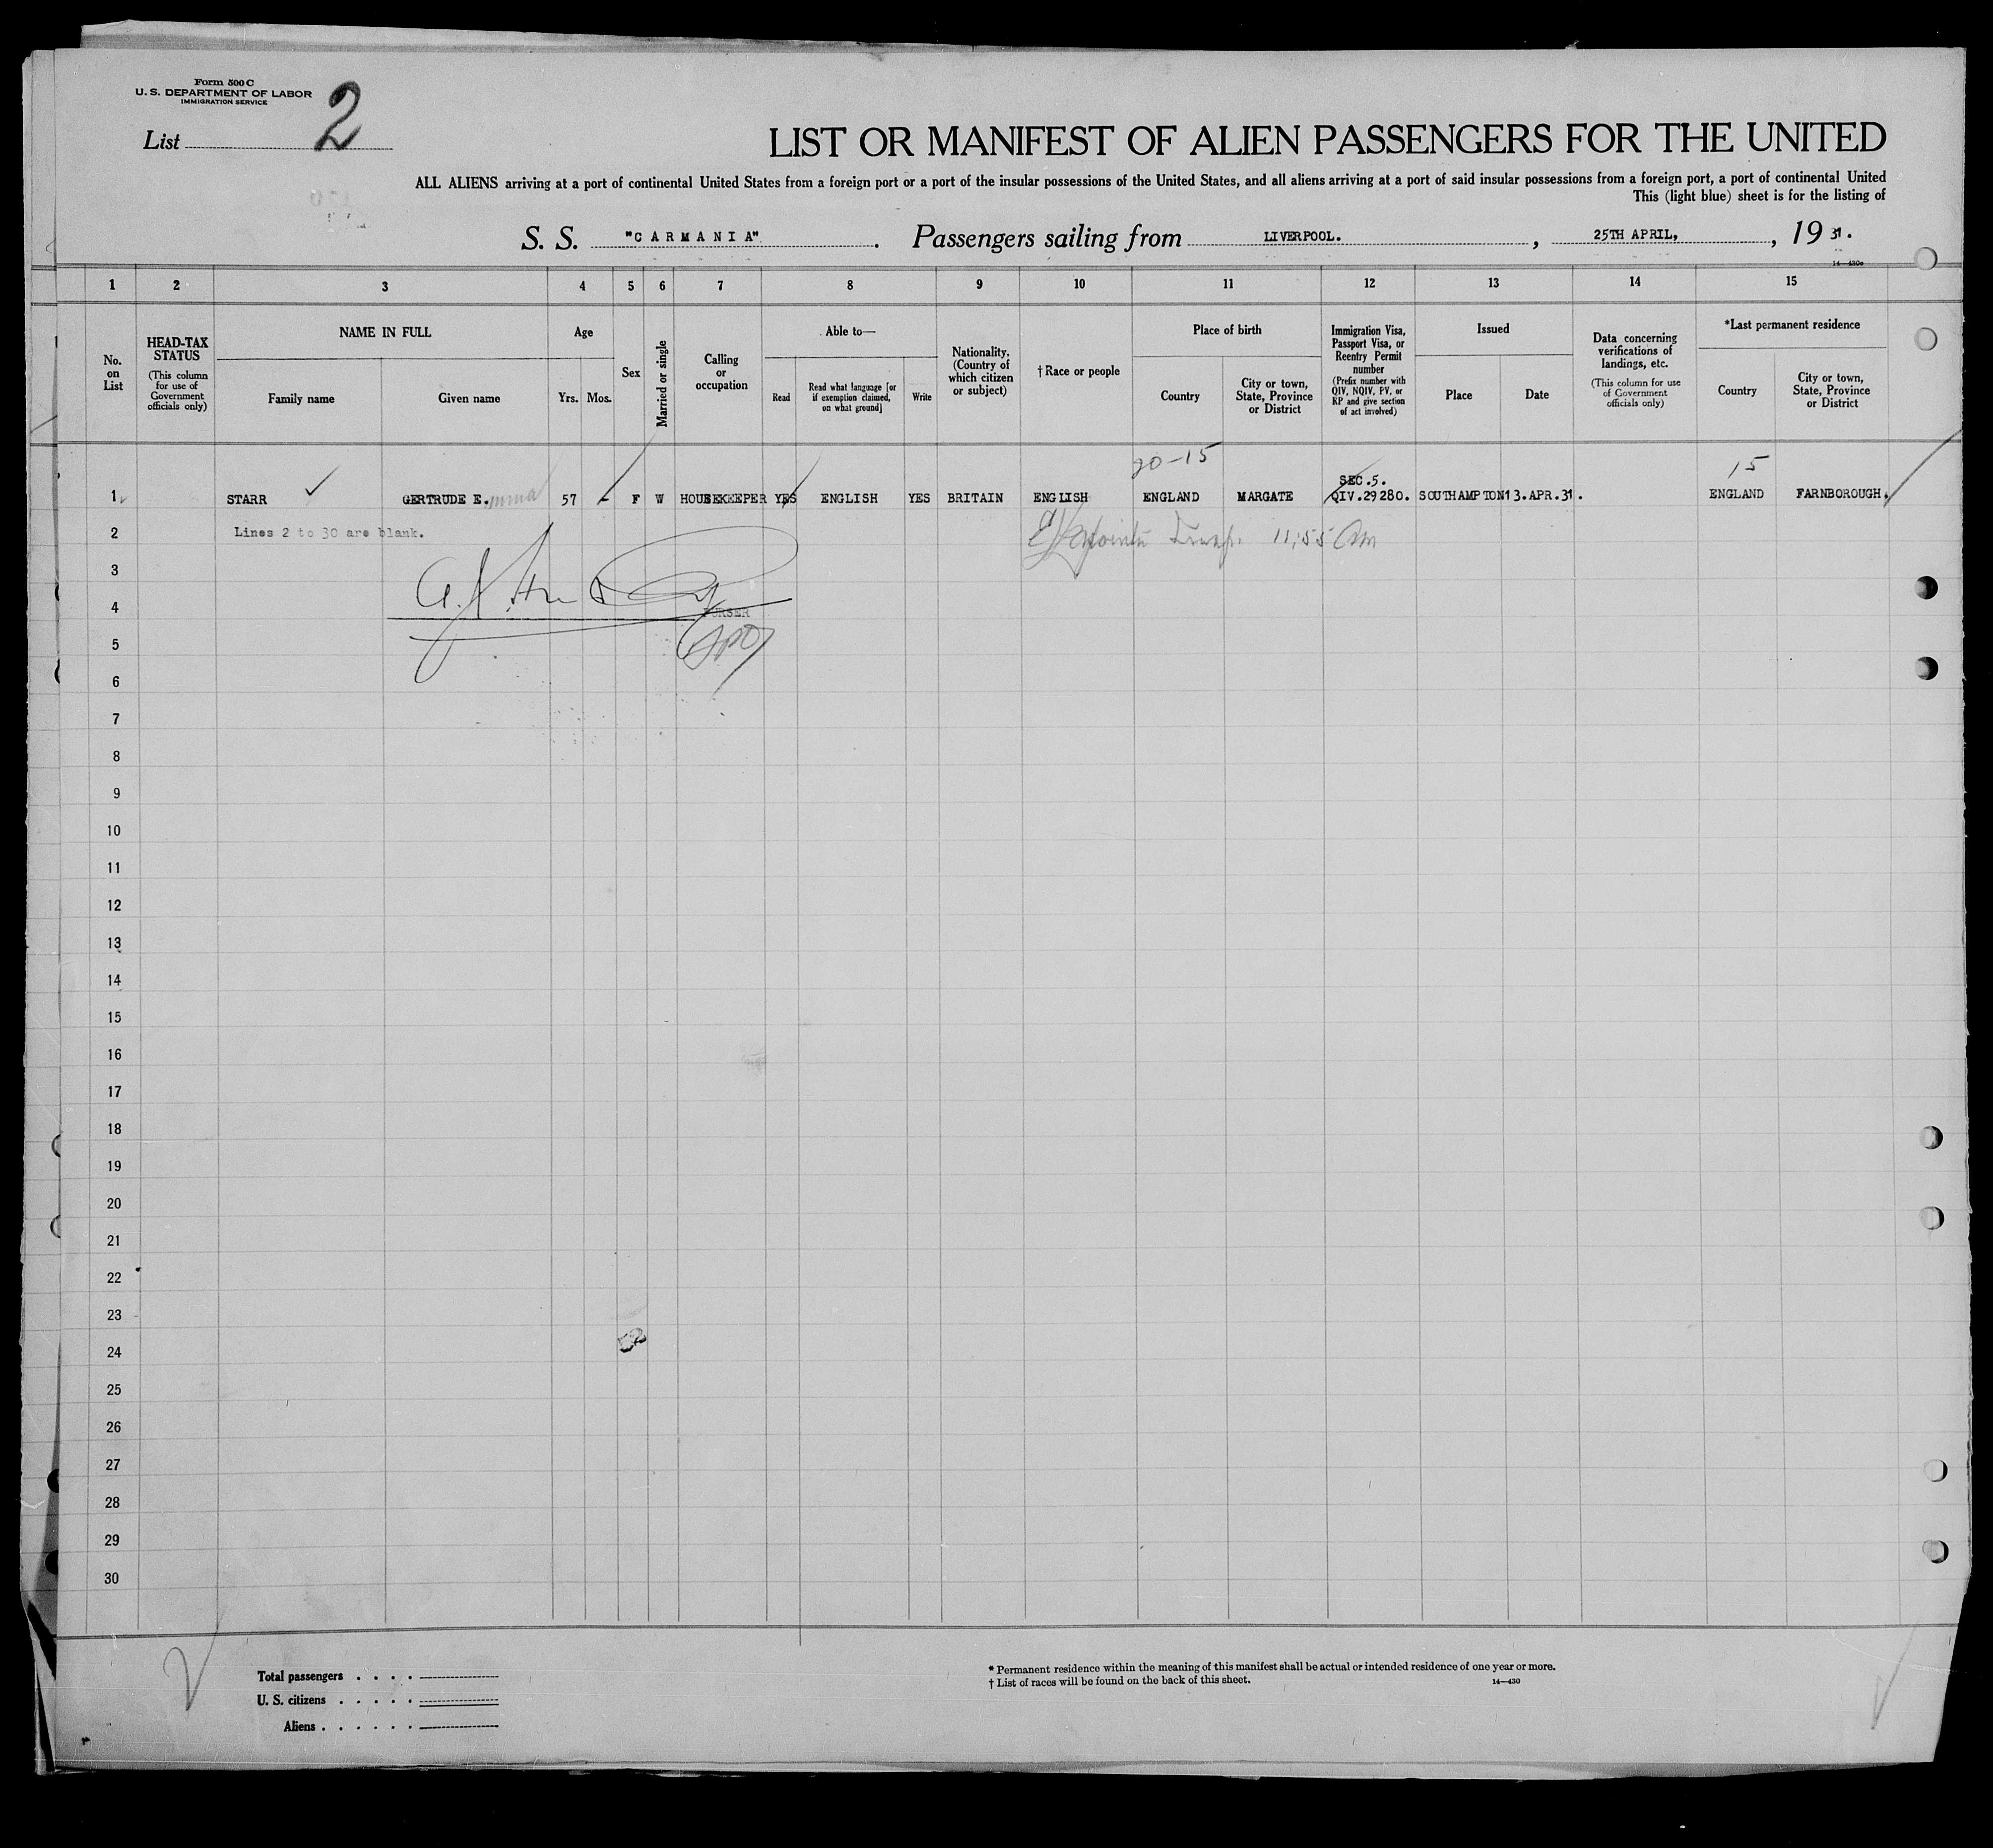 Form 500 C
U. S. DEPARTMENT OF LABOR
IMMIGRATION SERVICE
List 2
LIST OR MANIFEST OF ALIEN PASSENGERS FOR THE UNITED
ALL ALIENS arriving at a port of continental United States from a foreign port or a port of the insular possessions of the United States, and all aliens arriving at a port of said insular possessions from a foreign port, a port of continental United
This (light blue) sheet is for the listing of
S. S. "CARMANIA". Passengers sailing from LIVERPOOL. , 25TH APRIL, , 19 31.
1 2 3 4 5 6 7 8 9 10 11 12 13 14 15
No. on List
HEAD-TAX STATUS
(This column for use of Government officials only)
NAME IN FULL
Family name
Given name
Age
Yrs.
Mos.
Sex
Married or single
Calling or occupation
Able to—
Read
Read what language [or if exemption claimed, on what ground]
Write
Nationality. (Country of which citizen or subject)
† Race or people
Place of birth
Country
City or town, State, Province or District
Immigration Visa, Passport Visa, or Reentry Permit number
(Prefix number with QIV, NQIV, PV, or RP and give section of act involved)
Issued
Place
Date
Data concerning verifications of landings, etc.
(This column for use of Government officials only)
*Last permanent residence
Country
City or town, State, Province or District
20-15
15
SEC.5.
1 STARR GERTRUDE E.mma 57 - F W HOUSEKEEPER YES ENGLISH YES BRITAIN ENGLISH ENGLAND MARGATE QIV.29280. SOUTHAMPTON 13.APR.31. ENGLAND FARNBOROUGH.
2 Lines 2 to 30 are blank. 11:55 am
3
4 PURSER
5
6
7
8
9
10
11
12
13
14
15
16
17
18
19
20
21
22
23
24
25
26
27
28
29
30
Total passengers
U. S. citizens
Aliens
* Permanent residence within the meaning of this manifest shall be actual or intended residence of one year or more.
† List of races will be found on the back of this sheet. 14—430